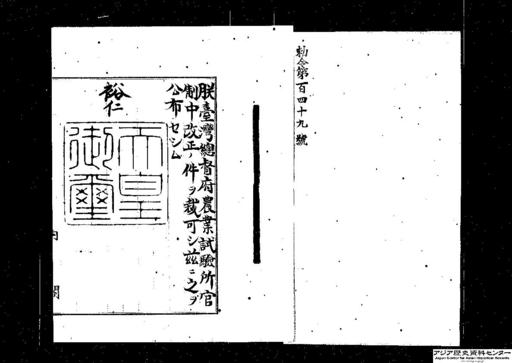 勅令第百四十九號
朕臺灣總督府農業試驗所官
制中改正ノ件ヲ裁可シ茲ニ之ヲ
公布セシム
裕仁
天皇
御璽
内
閣
アジア歴史資料センター
Japan Center for Asian Historical Records